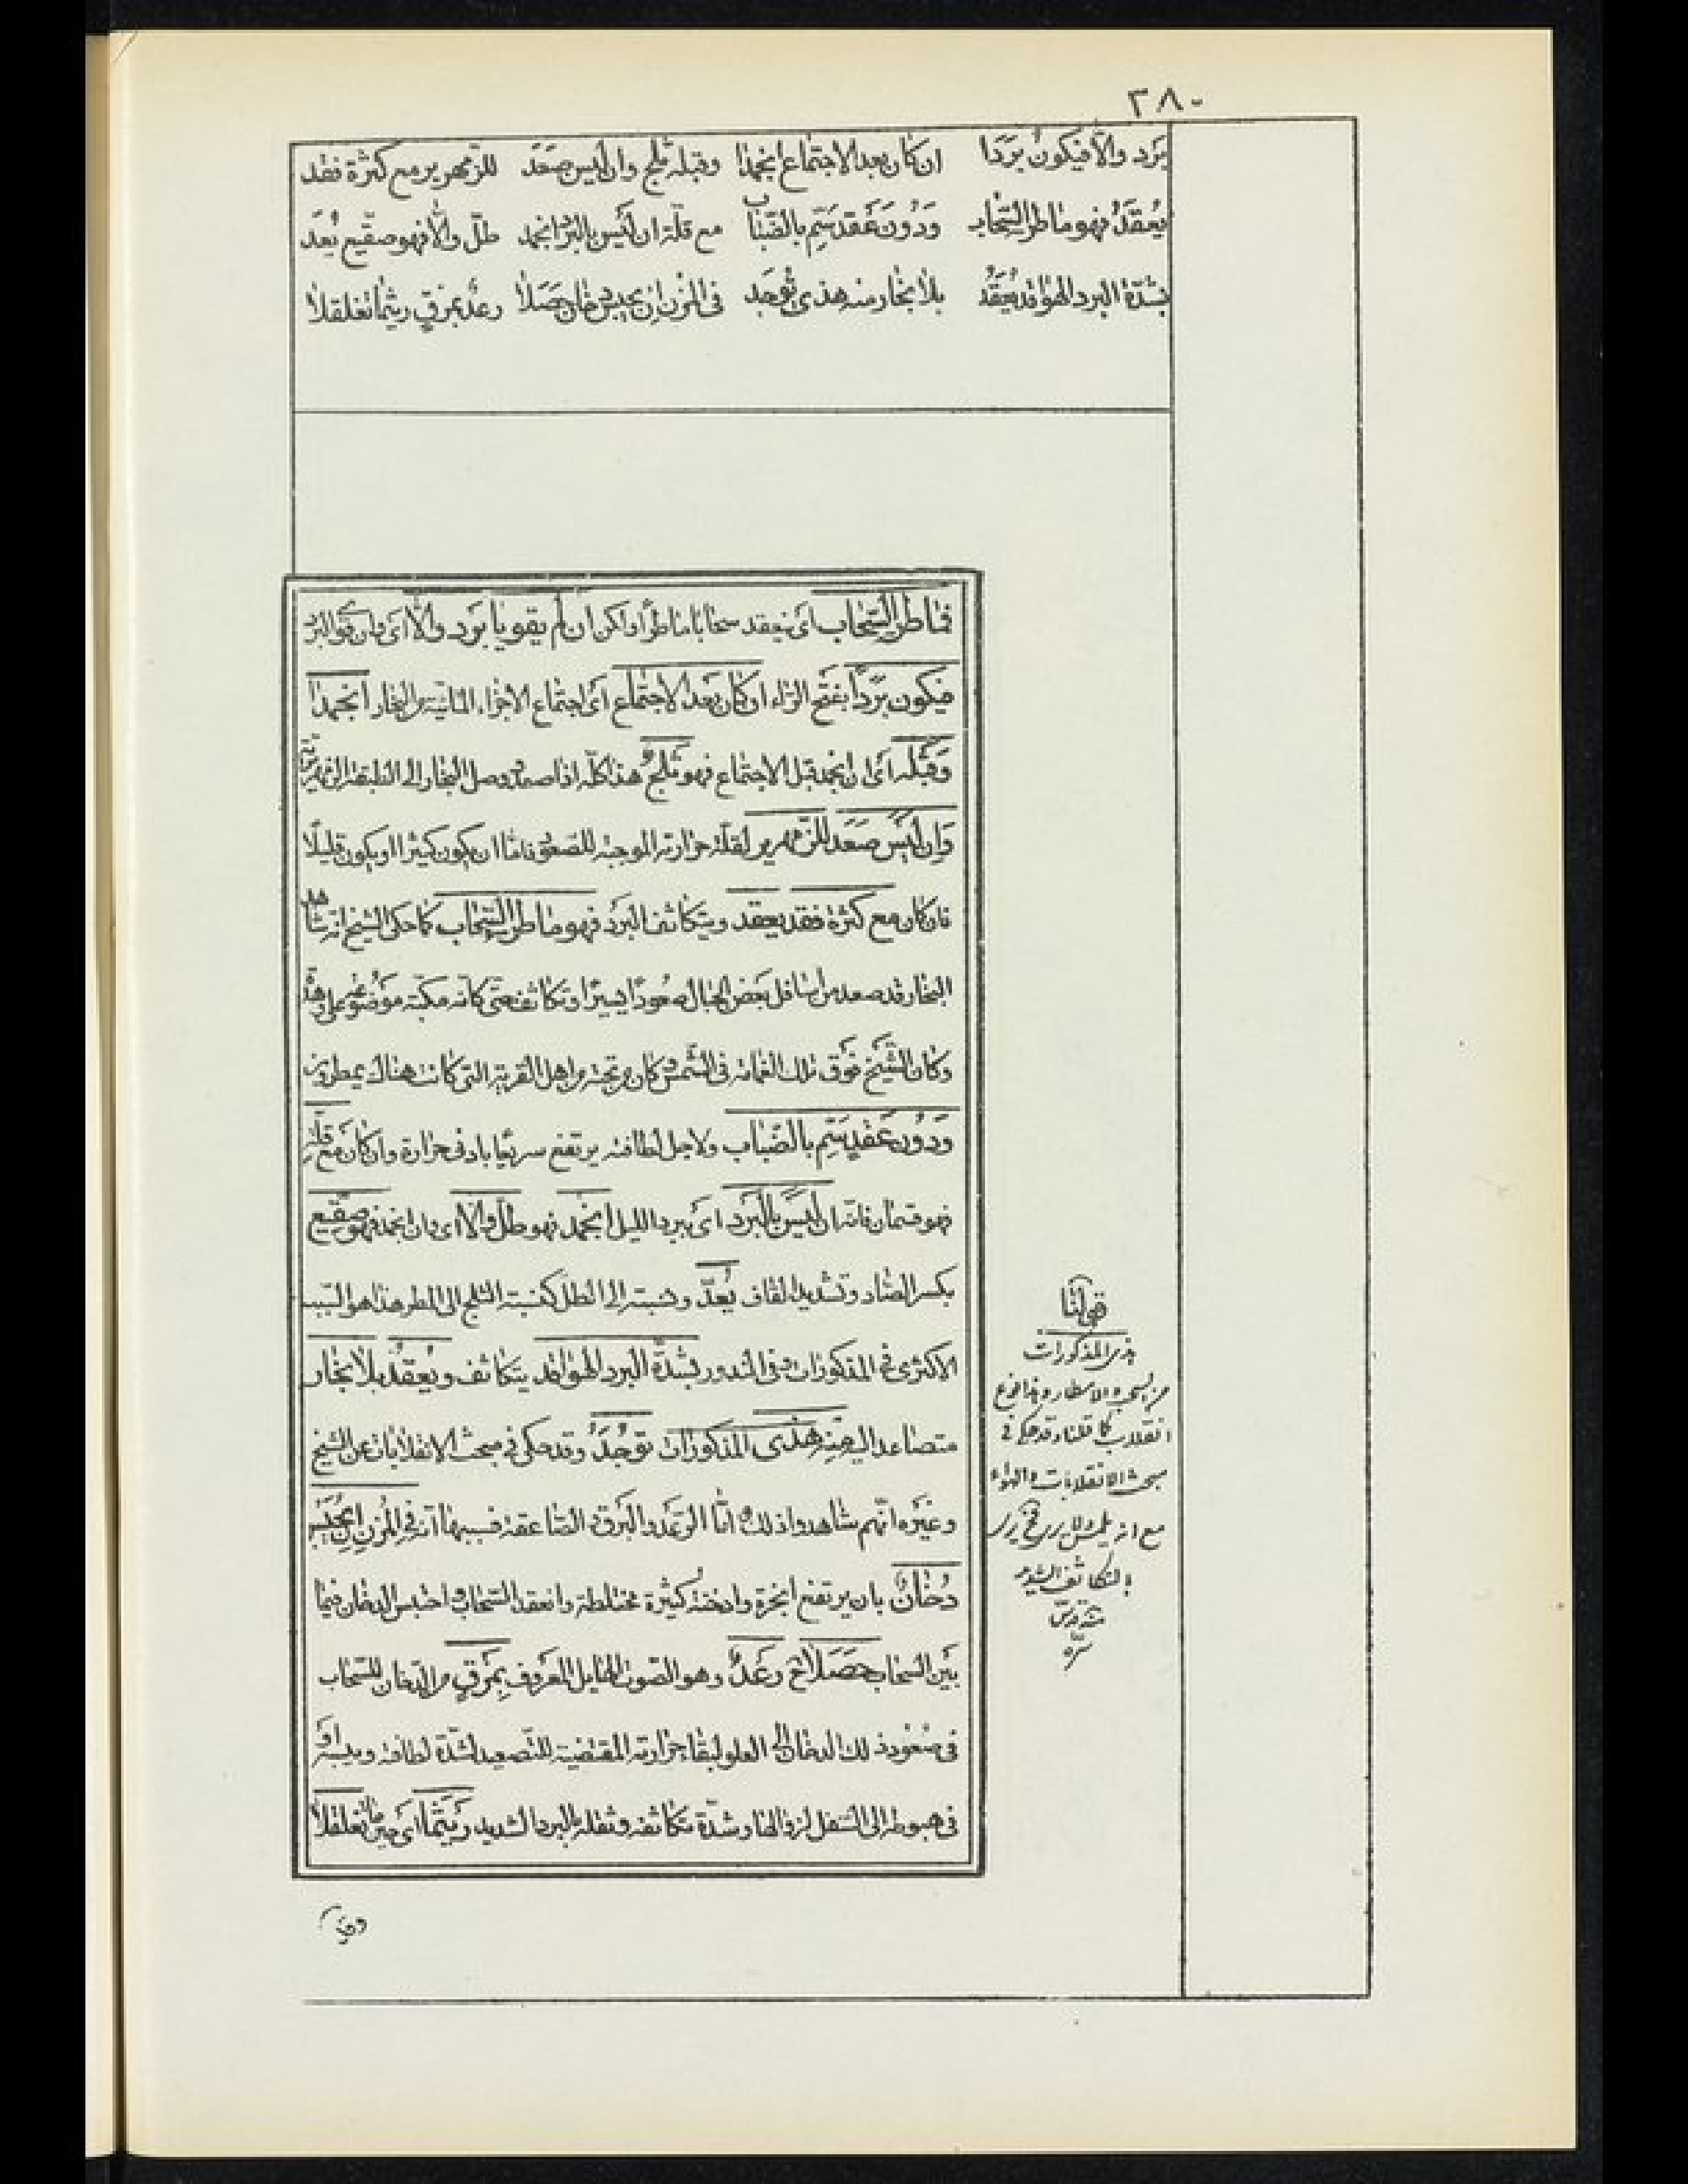 ٣٨٠
بَرَد والّا فيكون بَرَدا ان كان بعد الاجتماع انجمدا وقبله ثلج وان ليس صَعَد للزّمهرير مع كثرة فقد
يُعقَدُ فهو ماطر السّحاب ودُون عَقد سَتِّم بالضّباب مع قلّة ان ليس بالبَرْد انجمد طلّ والّا فهو صقيع يُعَدّ
بشدّة البرد الهوا قد يُعقَدُ بلا بخار منه هذى تُوجَد فى المزن ان يحبس دخان حَصَلا رعدٌ بمزق ريثما تغلغلا
فماطر السّحاب اى ينعقد سحابا ماطرا ولكن ان لم يقو يا بَرَد والّا اى وان قوى البرد
فيكون بَرَداً بفتح الراء ان كان بعد الاجتماع اى اجتماع الاجزاء المائية من البخار انجمدا
وقبله اى ان انجمد قبل الاجتماع فهو ثلجٌ هذا كلّه اذا صعد ووصل البخار الى الطبقة الزمهريرية
وان ليس صَعَد للزّمهرير لقلّة حرارته الموجبة للصعود فامّا ان يكون كثيرا او يكون قليلًا
فان كان مع كثرة فقد يعقد ويتكاثف البرد فهو ماطر السّحاب كما حكى الشيخ انه شاهد
البخار قد صعد من اسافل بعض الجبال صعودًا يسيرا وتكاثف حتى كانّه مكبّة موضوعة على وهدة
وكان الشّيخ فوق تلك الغمامة فى الشّمس وكان من تحته من اهل القرية التى كانت هناك يمطرون
ودُون عَقدٍ سَتِّم بالضّباب ولاجل لطافته يرتفع سريعا بادنى حرارة وان كان مع قلّة
فهو قسمان فانه ان ليس بالبَرْد اى ببرد الليل انجمد فهو طلّ والّا اى وان انجمد فهو صقيع
بكسر الصّاد وتشديد القاف يُعَدّ ونسبته الى الطّل كنسبة الثلج الى المطر هذا هو السّبب
الاكثرى فى المذكورات وفى الندور بشدّة البرد الهوا قد يتكاثف ويُعقَدُ بلا بخار
متصاعد اليه منه هذى المذكورات تُوجَدُ وقد حكى فى مبحث الانقلابات عن الشيخ
وغيره انّهم شاهدوا ذلك و امّا الرّعد والبرق والصّاعقة فسببها انّه فى المُزن ان يُحبَس
دُخانٌ بان يرتفع ابخرة وادخنة كثيرة مختلطة وانعقد السّحاب واحتبس الدخان فيما
بين السّحاب حَصَلا ح رَعدٌ وهو الصّوت الهايل المعروف بمزقٍ من الدّخان للسّحاب
فى صعود ذلك الدخان الى العلو لبقاء حرارته المقتضية للتّصعيد لشدّة لطافته ويبسه او
فى هبوطه الى السّفل لزوالها وشدّة تكاثفه وثقله بالبرد الشديد رَيثَما اى حين ما تغلغلا
قولنا
هذى المذكورات
من السحب والامطار وهذا نوع
انقلاب كما قلنا وقد حكى فى
مبحث الانقلابات والهواء
مع انه يلمس ولا يرى
بالتكاثف الشديد
منه قدس
سرّه